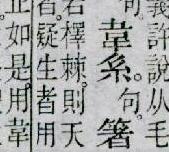 義許說从毛
韋系。句。箸
檡棘。則天
疑生者用
如是用韋